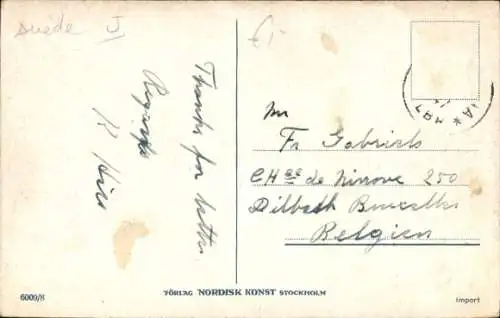 suède J
Thanks for letter
Regards
Mr
Fr Gabriels
CHée de Ninove 250
Dilbeek Bruxelles
Belgien
6000/8
FÖRLAG NORDISK KONST STOCKHOLM
Import